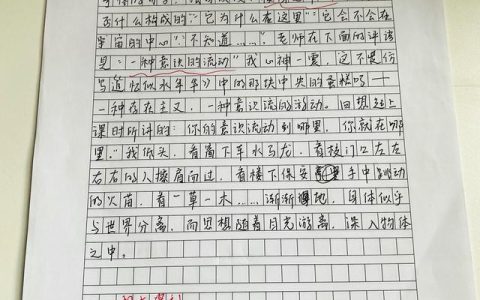 是什么构成的”“它为什么在这里”“它会不会在
宇宙的中心”“不知道……。老师在下面的评语
是：“一种意识的流动”我心神一震，这不是仿
与追忆似水年华》中的那块中央的蛋糕吗——
一种存在主义，一种意识流的游动。回想起上
课时所讲的：“你的意识流动到哪里，你就在哪
里。”我低头，看窗下车水马龙，看校门口左左
右右的人擦肩而过，看楼下保安手中
的火苗，看一草一木……渐渐地，身体似乎
与世界分离，而思想随着目光游离，深入物体
之中。